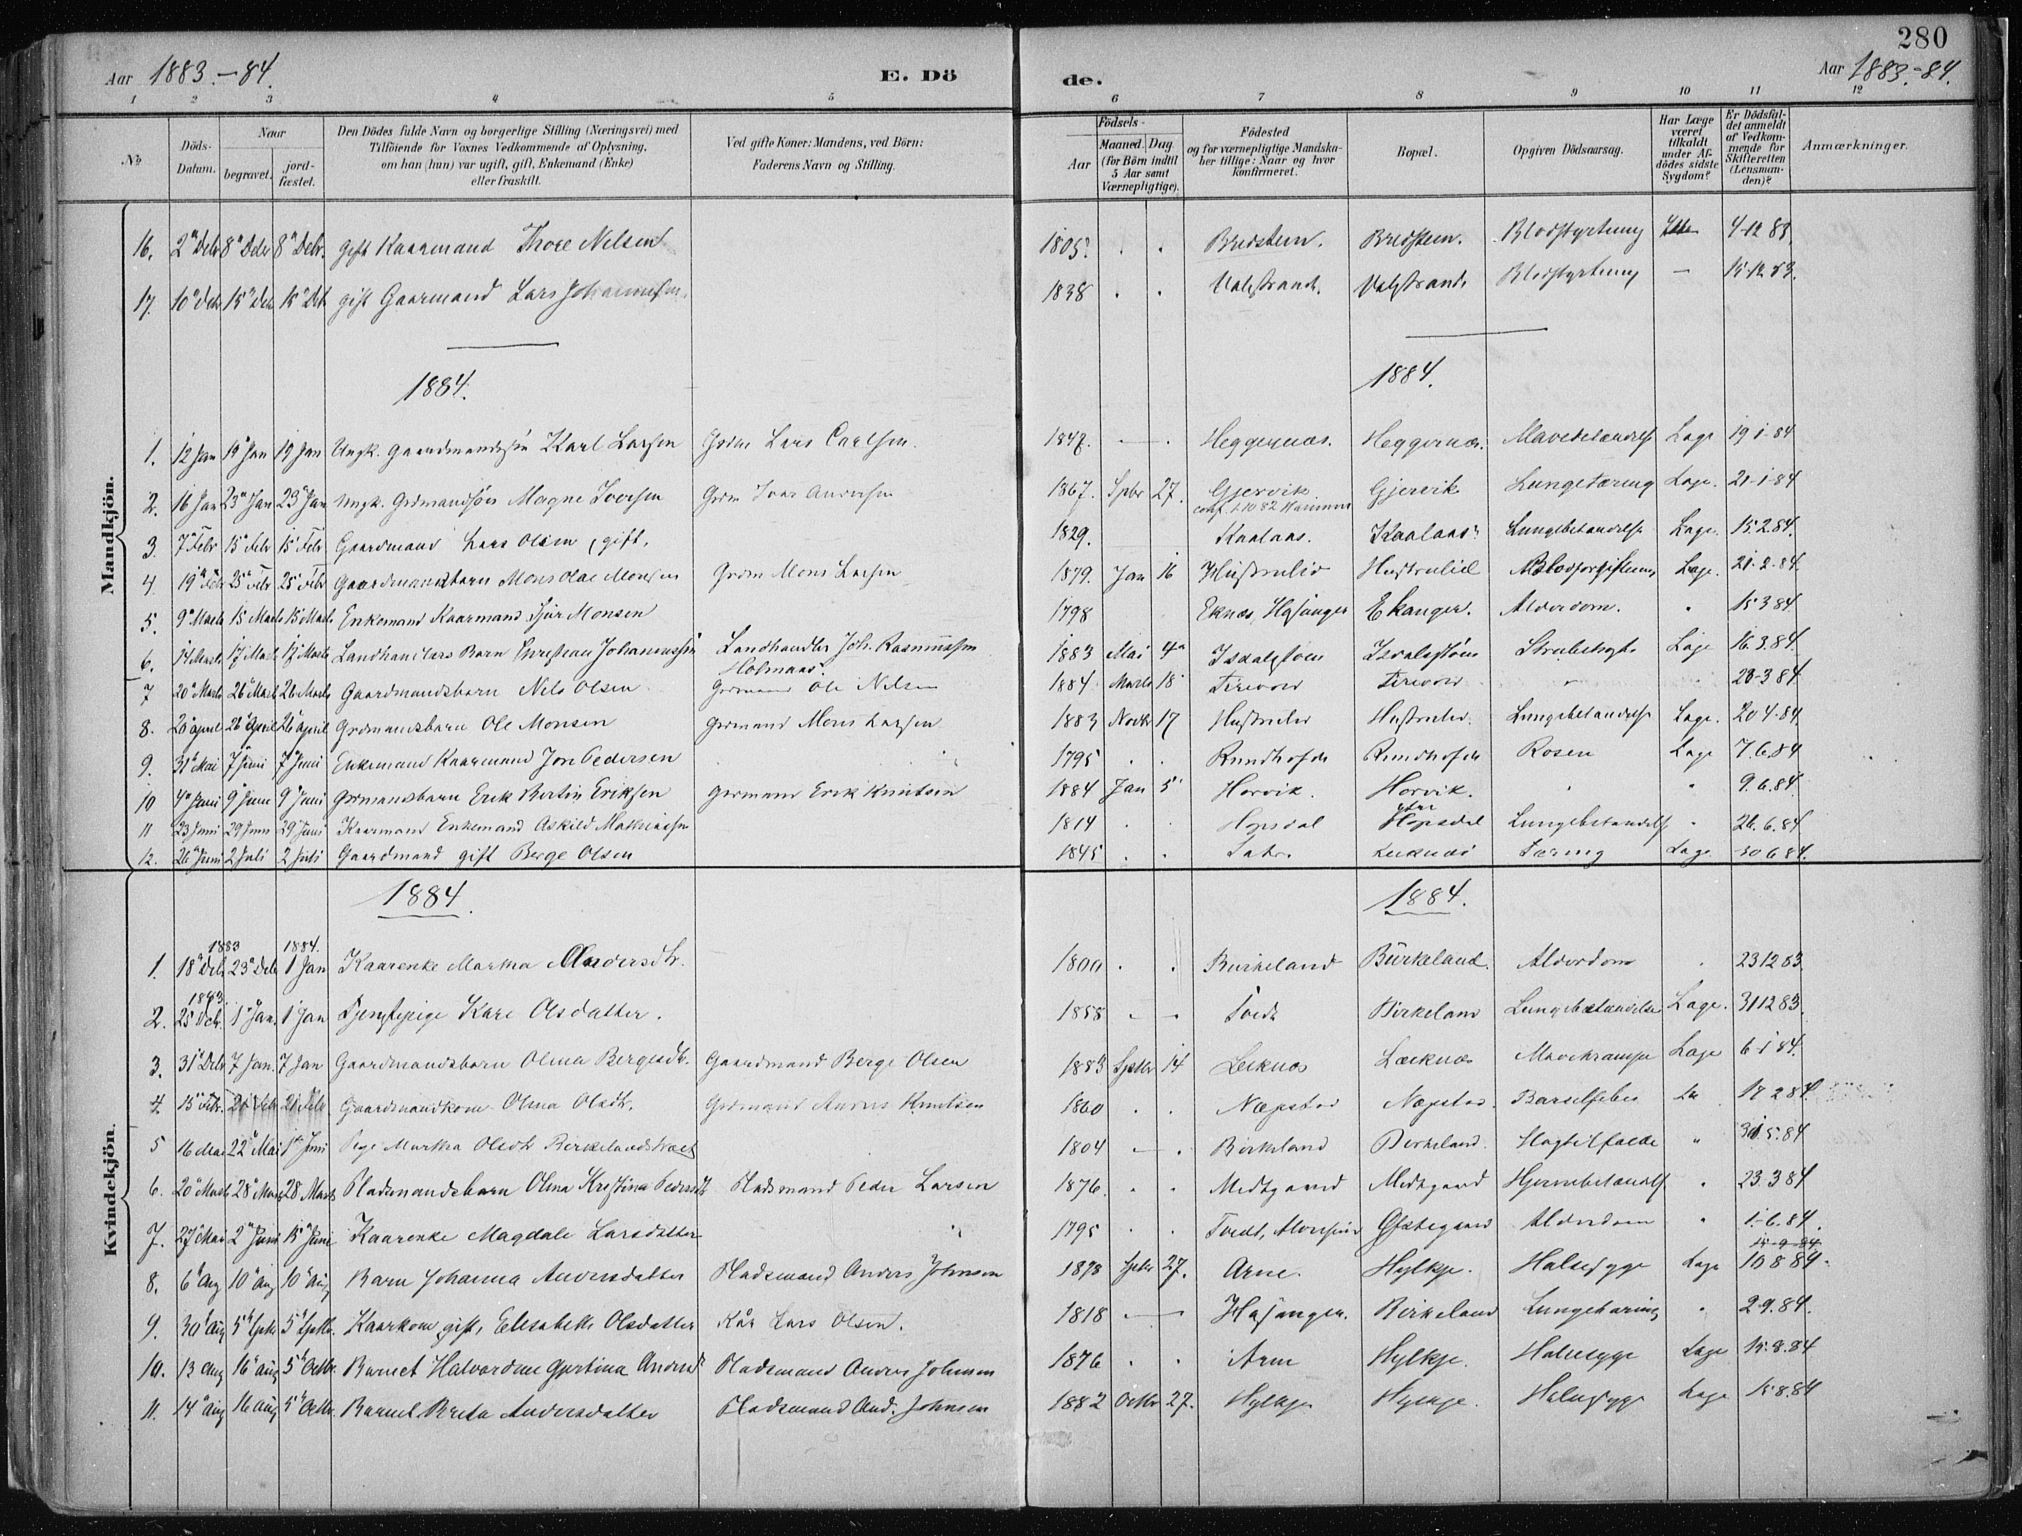 280
Aar 1883.-84. E. Dö de. Aar 1883.-84.
1 2 3 4 5 6 7 8 9 10 11 12
No Döds-Datum. Naar begravet. jord-fæstet. Den Dödes fulde Navn og borgerlige Stilling (Næringsvei) med Tilföiende for Voxnes Vedkommende af Oplysning, om han (hun) var ugift, gift, Enkemand (Enke) eller fraskilt. Ved gifte Koner: Mandens, ved Börn: Faderens Navn og Stilling. Födsels- Aar Maaned. Dag. (for Börn indtil 5 Aar samt Værnepligtige). Födested og for værnepligtige Mandskaber tillige: Naar og hvor konfirmeret. Bopæl. Opgiven Dödsaarsag. Har Læge været tilkaldt under Afdödes sidste Sygdom? Er Dödsfaldet anmeldt af Vedkommende for Skifteretten (Lensmanden)? Anmærkninger.
Mandkjön.
16. 2 Debr 8 Debr 8 Debr. gift Kaarmand Thore Nilsen 1805 . . Bredstein. Bredstein. Blodstyrtning 4-12 83.
17. 10 Debr 15 Deb 15 Deb gift Gaarmand Lars Johannessen. 1838 . . Valestrand. Valestrand. Blodstyrtning — 15-12 83.
1884. 1884.
1. 12 Jan 19 Jan 19 Jan Ungk. Gaardmandssön Karl Larsen Grdm Lars Carlsen. 1847. — . Heggernæs. Heggernæs. Mavebetændelse Læge 19 1-84
2. 16 Jan 23 Jan 23 Jan ungk. Grdmandssön Magne Iversen Grdm Ivar Andersen 1867. Spbr 27. Gjervik conf. 1/10 82 Hammer Gjervik Lungetæring Læge. 21-1-84
3. 7 Febr 15 Febr 15 Febr Gaardmand Lars Olsen, gift. 1829. Kaalaas. Kaalaas Lungebetændelse Læge. 15.2 84.
4. 19 Febr 25 Febr 25 Febr Gaardmandsbarn Mons Olai Monsen Grdm Mons Larsen 1879. Jan 16 Hustrulid Hustrulid Blodforgiftning Læge. 21-2-84.
5. 9 Marts 15 Marts 15 Marts Enkemand Kaarmand Sjur Monsen 1798 Eknæs, Hosanger Ekanger. Alderdom. " 15 3 84
6. 14 Marts 17 Marts 17 Marts Landhandlers Barn Christian Johannessen Landhandler Joh. Rasmussen Holmaas. 1883 Mai 4 Isdalstöen Isdalstöen Strubehoste Læge 16.3.84.
7 20 Marts 26 Marts 26 Marts Gaardmandsbarn Nils Olsen Grdmand Ole Nilsen 1884 Marts 18 " " 28-3 84.
8. 20 April 26 April 26 April Grdmandsbarn Ole Monsen Grdmand Mons Larsen 1883 Novbr 17 Hustrulid Hustrulid. Lungebetændelse Læge. 20 4-84
9. 31 Mai 7 Juni 7 Juni Enkemand Kaarmand Jon Pedersen 1795 . . Rundhovde Rundhovde Rosen Læge 7.6.84
10 4 Juni 9 Juni 9 Juni Grdmandsbarn Erik Bertin Eriksen Grdmand Erik Knutsen 1884 Jan 5 Horvik. Horvik. " " 9.6.84.
11 23 Juni 29 Juni 29 Juni Kaarmand Enkemand Askild Mathiassen 1814 . . Hopsdal ytre Hopsdal Lungebetændelse " 26.6.84
12. 26 Juni 2 Juli 2 Juli Gaardmand gift Berge Olsen 1845 . . Leiknæs Tæring Læge 30 6 84.
Kvindekjön.
1884. 1884.
1. 1883 18 Deb 23 Deb 1884. 1 Jan Kaarenke Martha Andersdtr. 1800 . . Birkeland Birkeland. Alderdom " 23 12 83.
2. 1883. 25 Debr. 1 Jan. 1 Jan Tjenstepige Kari Olsdatter. 1858 — — Tvedt Birkeland Lungebetændelse Læge. 31 12 83.
3. 31 Debr 7 Jan. 7 Jan Gaardmandsbarn Olina Bergesdtr. Gaardmand Berge Olsen 1883 Septbr 14 Leiknæs Leiknæs Mavekrampe Læge 6-1-84.
4. 15 Febr. 20 Febr 20 Febr Gaardmandkone Olina Olsdtr. Grdmand Anders Knutsen 1860 . . Næpstad Næpstad. Barselfeber 18 2 84
5 16 Mai 22 Mai 1 Juni Pige Martha Olsdtr Birkelandstræet 1804 — . Birkeland Birkeland. Slagtilfælde " 31.5.84
6. 20 Marts 28 Marts 28 Marts Pladsmandsbarn Olina Kristina Pedersdtr Pladsmand Peder Larsen 1876. . . Midtgaard Midtgaard Hjernebetændelse " 23.3 84
7. 27 Mai 2 Juni 15 Juni Kaarenke Magdale Larsdatter " 1795 . . Tvedt, Alversund Östegaard Alderdom " 1.-6.84.
8. 6 Aug 10 Aug 10 Aug Barn Johanna Andersdatter Pladsmand Anders Johnsen 1878 Sptbr 27. Arne. Hylkje. Halssyge Læge 10 8 84.
9. 30 Aug 5 Sptbr 5 Sptbr. Kaarkone gift, Elisabeth Olsdatter Kår Lars Olsen. 1818 — — Hosanger. Birkeland Lungetæring " 2 9.84.
10. 13 Aug 16 Aug 5 Octbr. Barnet Halvardine Gjertina Andersdtr Pladsmand Anders Johnsen 1876 . . Arne Hylkje. Halssyge Læge 15.8.84
11. 14 Aug 16 Aug 5 Octbr. Barnet Brita Andersdatter Pladsmand And. Johnsen 1882 Octbr 27. Hylkje Hylkje. Halssyge Læge 15.8.84